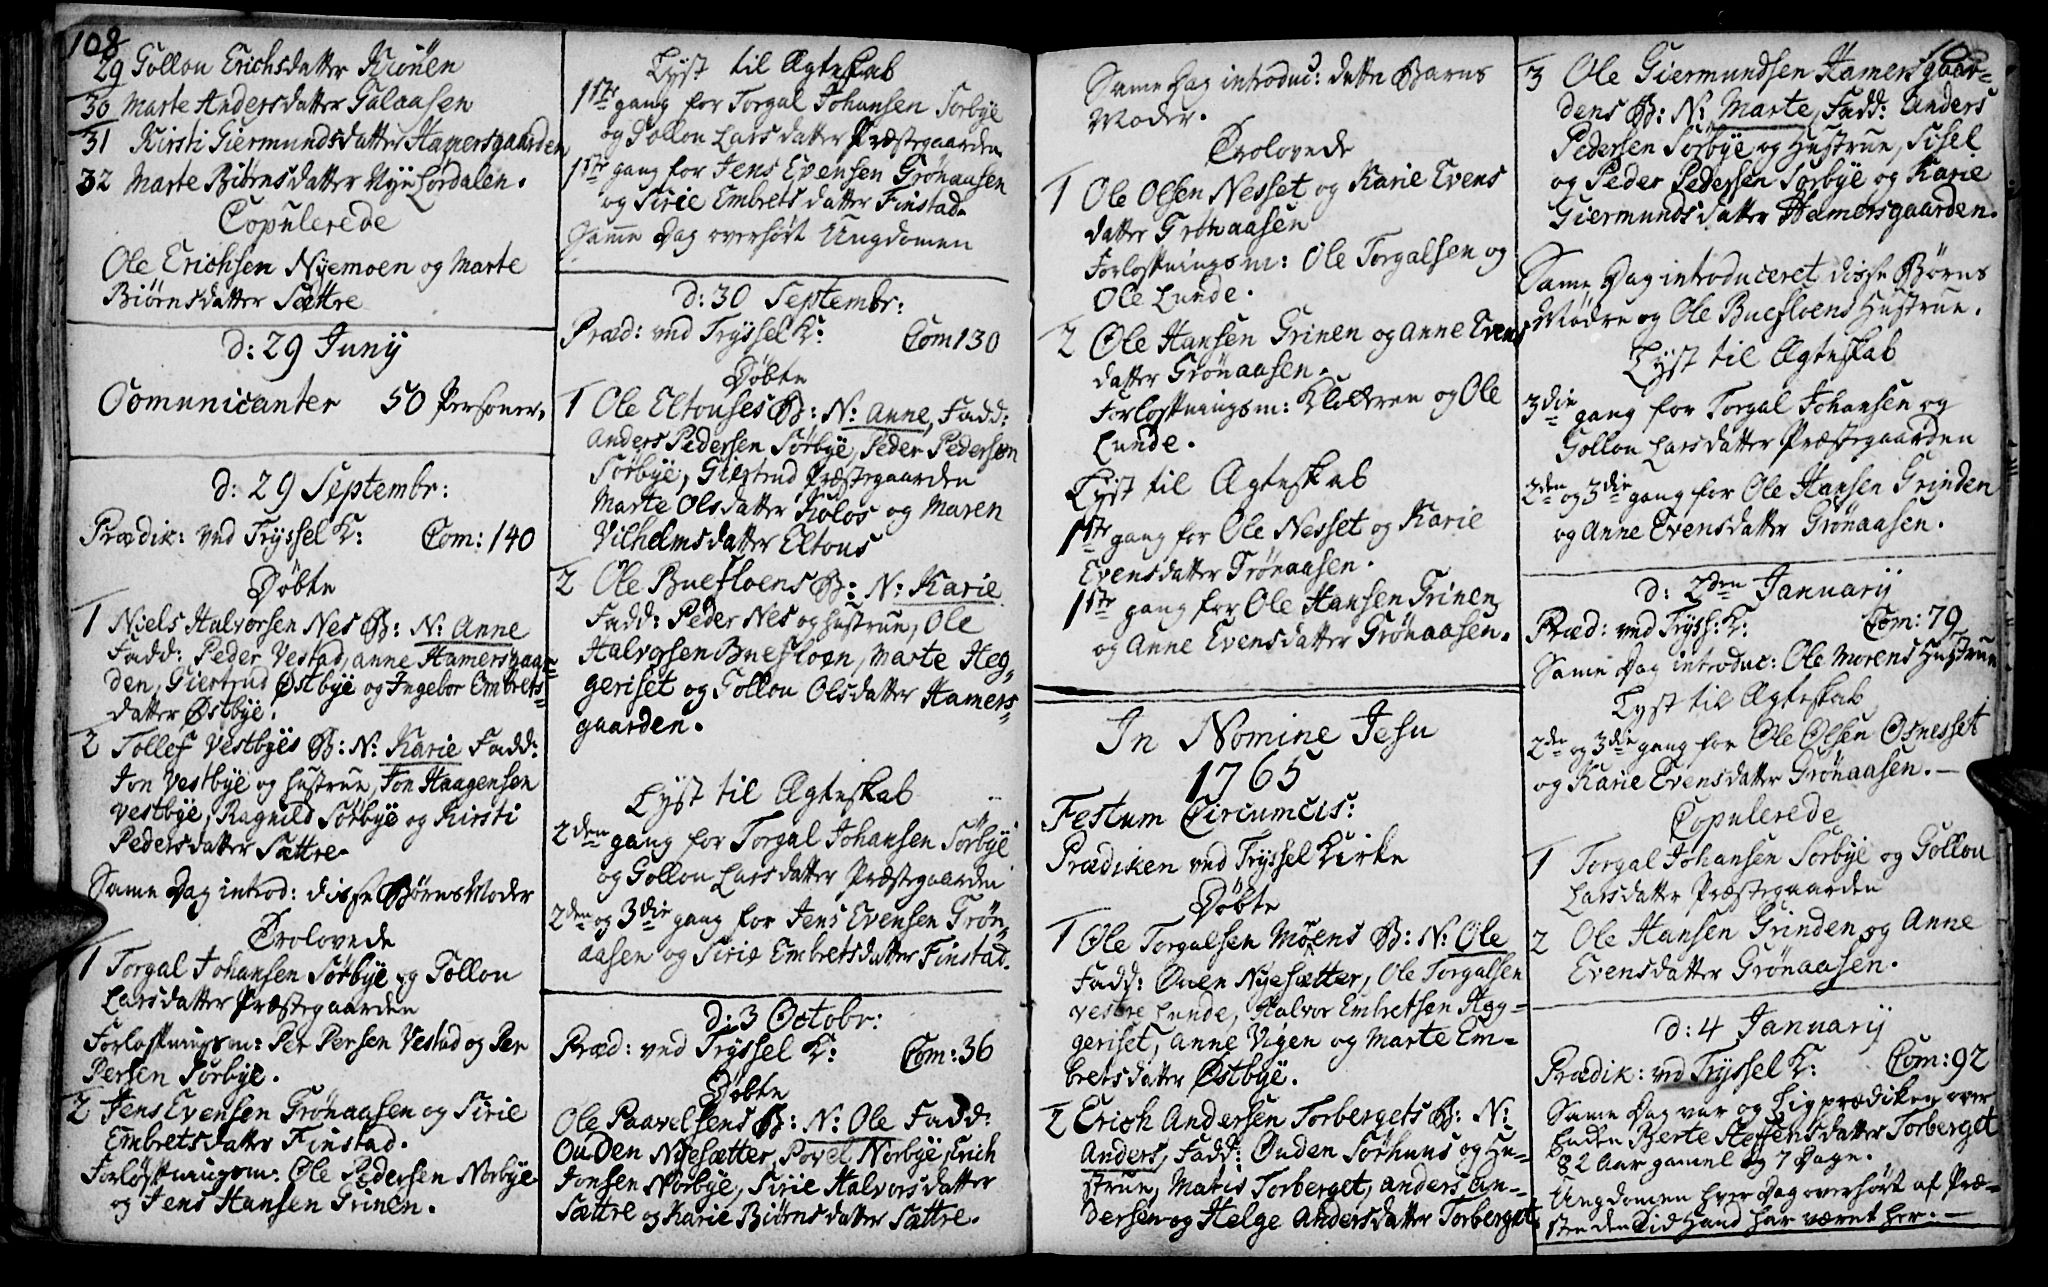 108
29 Gollou Erichsdatter Kiönen
30 Marte Andersdatter Galaasen
31 Kirsti Giermundsdatter Hamersgaarden
32 Marte Biörnsdatter Nyeliordalen.
Copulerede
Ole Erichsen Nyemoen og Marte
Biörnsdatter Sættre
d: 29 Junij
Comunicanter 50 Personer,
d: 29 Septembr:
Prædik: ved Tryssel K: Com: 140
Döbte
1 Niels Halvorsen Nes B: N: Anne
Fadd: Peder Vestad, Anne Hamersgaar=
den, Giertrud Östbye og Ingebor Embrets=
datter Östbye.
2 Tollef Vestbyes B: N: Karie Fadd:
Jon Vestbye og Hustrue, Jon Haagensen
Vestbye, Ragnild Sörbye og Kirsti
Pedersdatter Sættre
Same Dag introd: disse Börns Moder
Trolovede
1 Torgal Johansen Sörbye og Gollou
Larsdatter Præstegaarden
Forlofningsm: Per Persen Vestad og Per
Persen Sorbye.
2 Jens Evensen Grönaasen og Sirie
Embretsdatter Finstad.
Forlöfningsm: Ole Pedersen Norbye
og Jens Hansen Grinen.
Lyst til Ægteskab
1ste gang for Torgal Johansen Sorbye
og Gollou Larsdatter Præstegaarden
1ste gang for Jens Evensen Grönaasen
og Sirie Embretsdatter Finstad.
Samme Dag overhört Ungdomen
d: 30 Septembr:
Præd: ved Tryssel K: Com 130
Döbte
1 Ole Eltouses B: N: Anne, Fadd:
Anders Pedersen Sörbye, Peder Pedersen
Sörbye, Giertrud Præstegaarden
Marte Olsdatter Kolos og Maren
Vilhelmsdatter Eltous
2 Ole Buefloens B: N: Karie
Fadd: Peder Nes og Hustrue, Ole
Halvorsen Buefloen, Marte Heg=
geriset og Gollou Olsdatter Hamers=
gaarden.
Lyst til Ægteskab
2den gang for Torgal Johansen Sörbye
og Gollou Larsdatter Præstegaarden
2den og 3die gang for Jens Evensen Grön=
aasen og Sirie Embretsdatter Finstad.
d: 3 Octobr:
Præd: ved Tryssel K: Com: 36
Döbte
Ole Paavelsens B: N: Ole Fadd:
Ouden Nyesætter, Povel Norbye, Erich
Jonsen Norbye, Sirie Halvorsdatter
Sættre og Karie Biörnsdatter Sættre.
Same Dag introduc: dette Barns
Moder.
Trolovede
1 Ole Olsen Nesset og Karie Evens
datter Grönaasen
Forlofningsm: Ole Torgalsen og
Ole Lunde.
2 Ole Hansen Grinen og Anne Evens
datter Grönaasen.
Forlofningsm: Klokeren og Ole
Lunde.
Lyst til Ægteskab
1ste gang for Ole Nesset og Karie
Evensdatter Grönaasen.
1ste gang for Ole Hansen Grinen
og Anne Evensdatter Grönaasen.
In Nomine Jesu
1765
Festum Circumcis:
Prædiken ved Tryssel Kirke
Döbte
1 Ole Torgalsen Möens B: N: Ole
Fadd: Ouen Nyesætter, Ole Torgalsen
vestre Lunde, Halvor Embretsen Heg=
geriset, Anne Vigen og Marte Em=
bretsdatter Östbye.
2 Erich Andersen Torbergets B: N:
Anders, Fadd: Ouden Sörhuus og Hu=
strue, Matis Torberget, Anders An=
dersen og Helge Andersdatter Torberget
3 Ole Giermundsen Hamersgaar=
dens B: N: Marte, Fadd: Anders
Pedersen Sörbye og Hustrue, Sisel
og Peder Pedersen Sorbye og Karie
Giermundsdatter Hamersgaarden.
Same Dag introduceret disse Börns
Mödre og Ole Buefloens Hustrue.
Lyst til Ægteskab
3die gang for Torgal Johansen og
Gollou Larsdatter Præstegaarden
2den og 3die gang for Ole Hansen Grinden
og Anne Evensdatter Grönaasen.
d: 2den Januarij
Præd: ved Tryss: K: Com: 79
Same Dag introduc: Ole Morens Hustrue
Lyst til Ægteskab
2de og 3die gang for Ole Olsen Osnesset
og Karie Evensdatter Grönaasen.
Copulerede
1 Torgal Johansen Sorbye og Gollou
Larsdatter Præstegaarden
2 Ole Hansen Grinden og Anne
Evensdatter Grönaasen.
d: 4 Januarij
Prædik: ved Tryssel K: Com: 92
Same Dag var og Ligprædiken over
Berte Steffensdatter Torberget
82 Aar gamel og 7 Dage.
Ungdomen hver Dag overhört af Præ=
sten den Tid Hand har været her.